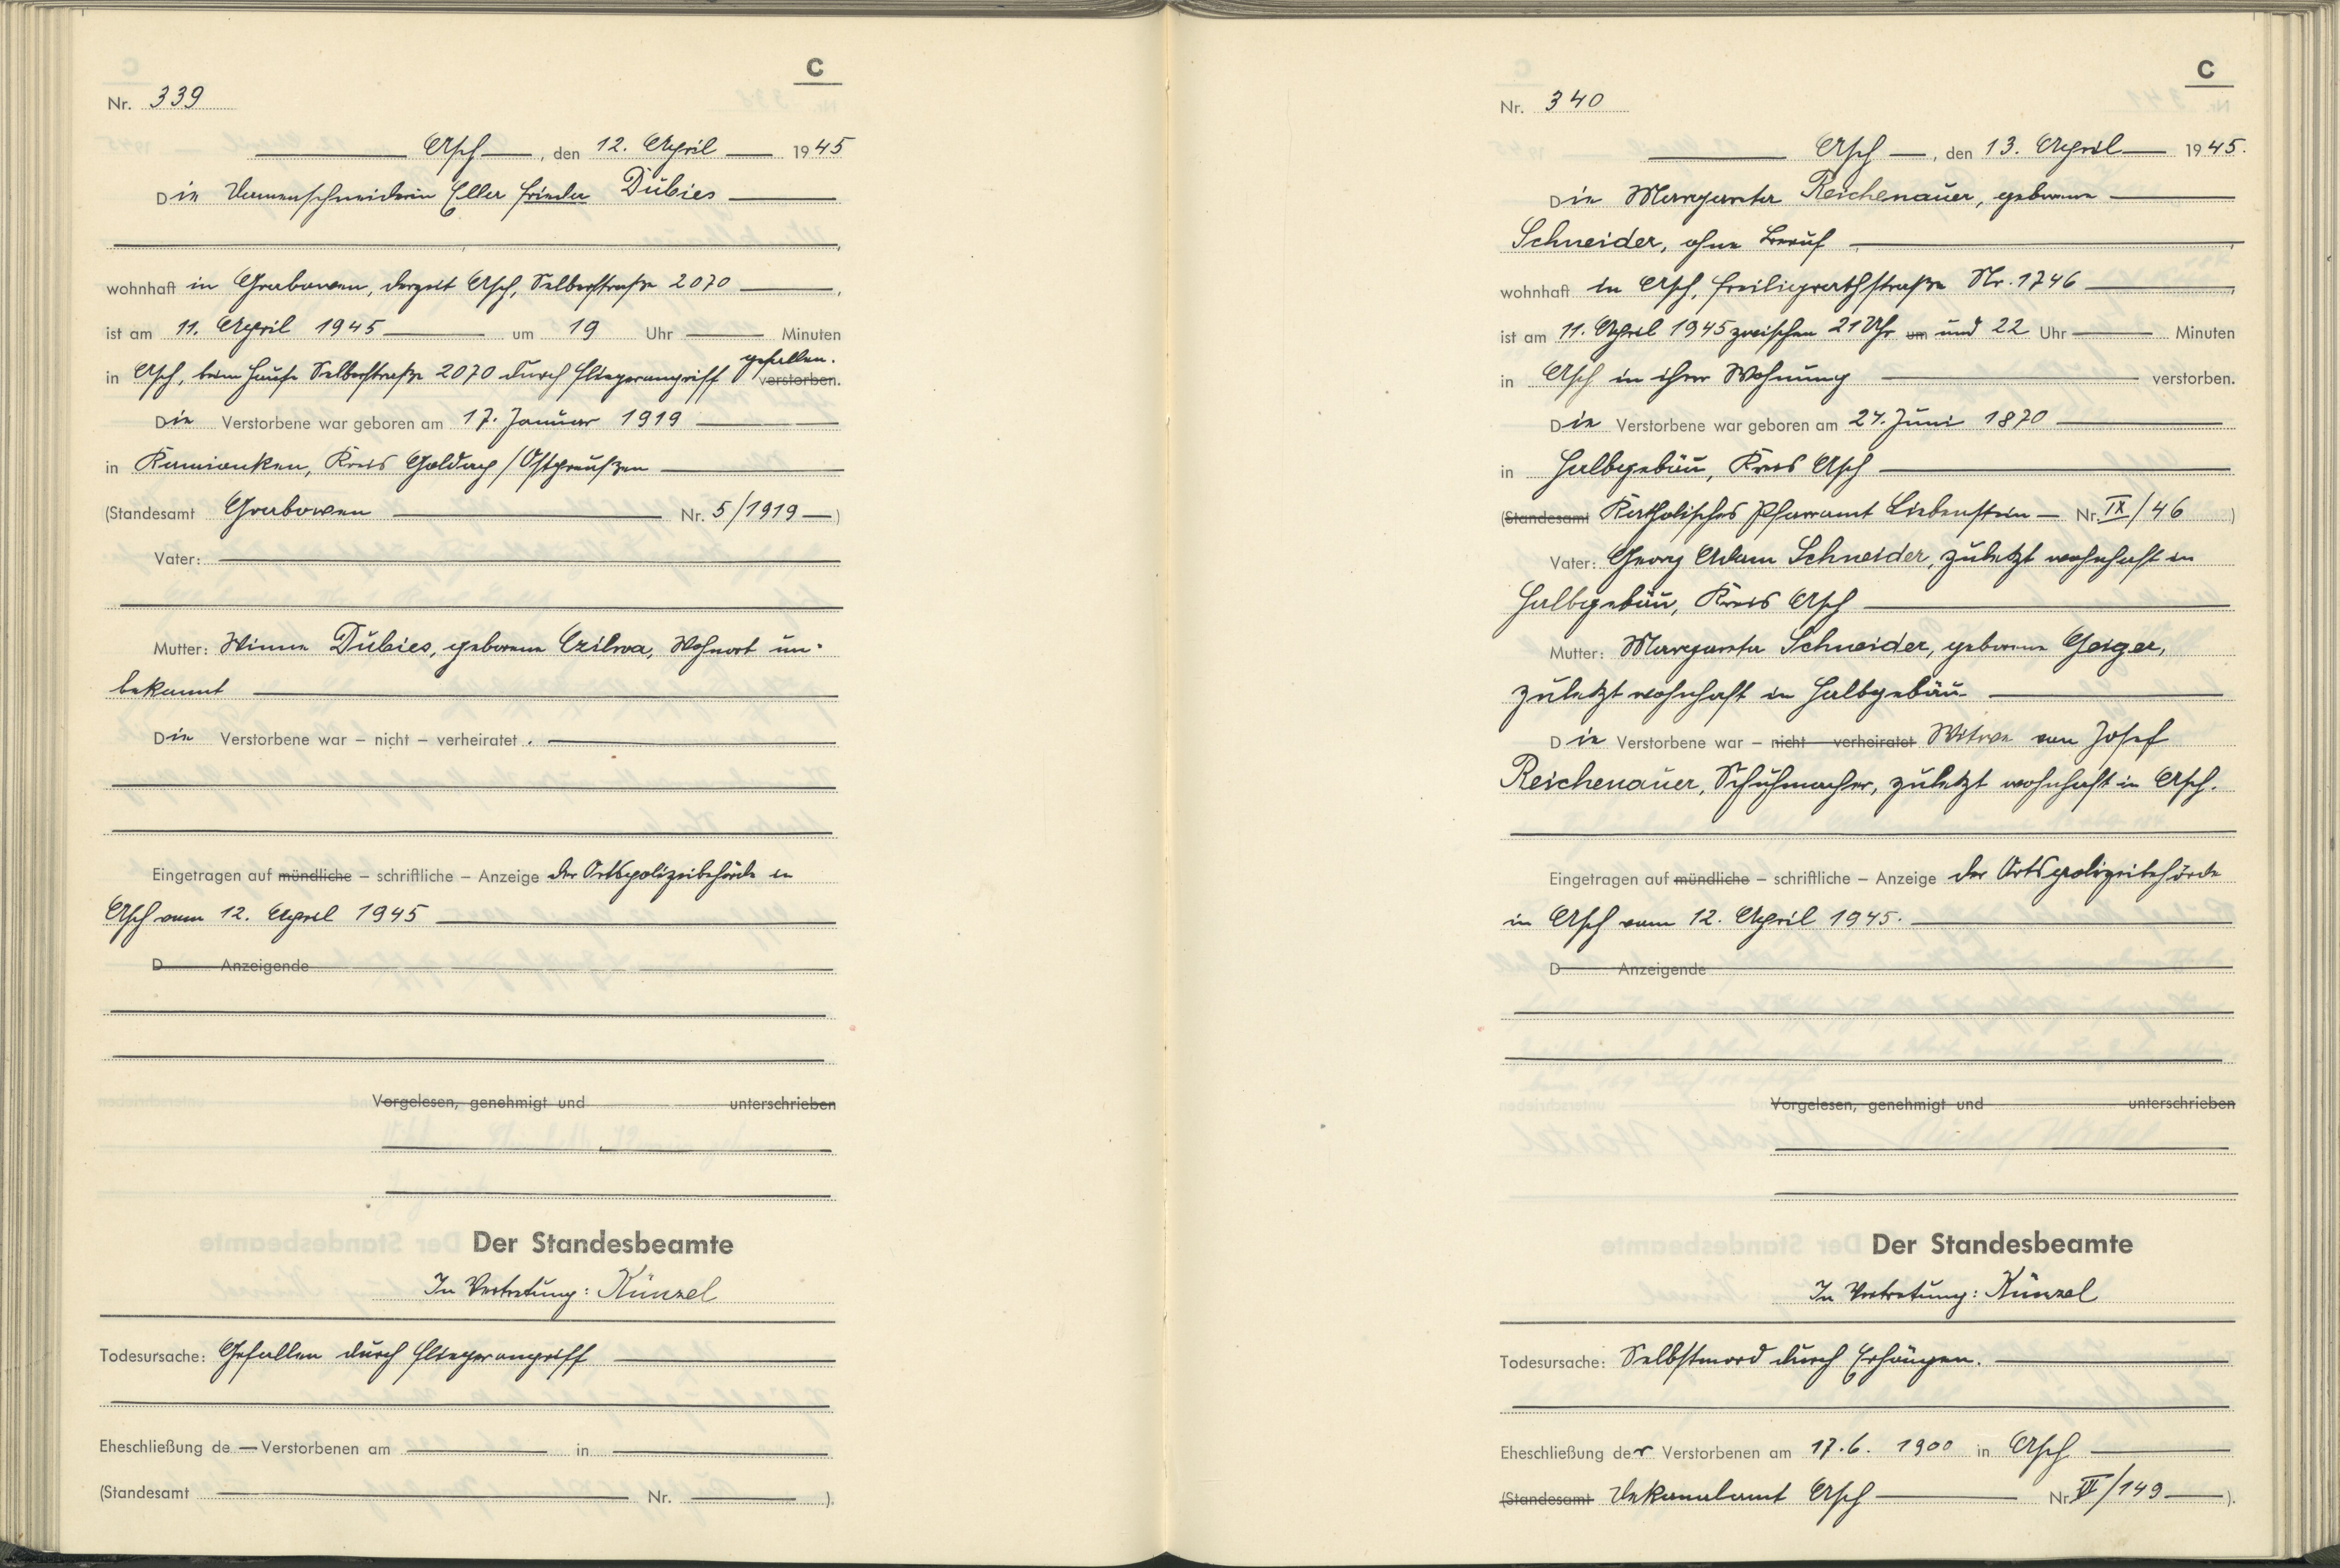 C
Nr. 339
Asch, den 12. April 1945
Die Damenschneiderin Ella Frieda Dubies
wohnhaft in Grabowen, derzeit Asch, Selberstraße 2070,
ist am 11. April 1945 um 19 Uhr Minuten
in Asch, beim Hause Selberstraße 2070 durch Fliegerangriff gefallen. verstorben.
Die Verstorbene war geboren am 17. Januar 1919
in Kamionken, Kreis Goldap/Ostpreußen
(Standesamt Grabowen Nr. 5/1919)
Vater:
Mutter: Minna Dubies, geborene Czilwa, Wohnort un-
bekannt
Die Verstorbene war – nicht – verheiratet.
Eingetragen auf mündliche – schriftliche – Anzeige der Ortspolizeibehörde in
Asch vom 12. April 1945
D Anzeigende
Vorgelesen, genehmigt und unterschrieben
Der Standesbeamte
In Vertretung: Künzel
Todesursache: Gefallen durch Fliegerangriff
Eheschließung de Verstorbenen am in
(Standesamt Nr. ).
C
Nr. 340
Asch, den 13. April 1945.
Die Margareta Reichenauer, geborene
Schneider, ohne Beruf,
wohnhaft in Asch, Freiligrathstraße Nr. 1746
ist am 11. April 1945 zwischen 21 Uhr um und 22 Uhr Minuten
in Asch in ihrer Wohnung verstorben.
Die Verstorbene war geboren am 24. Juni 1870
in Halbgebäu, Kreis Asch
(Standesamt Katholisches Pfarramt Liebenstein Nr. IX/46)
Vater: Georg Adam Schneider, zuletzt wohnhaft in
Halbgebäu, Kreis Asch
Mutter: Margareta Schneider, geborene Geiger,
zuletzt wohnhaft in Halbgebäu
Die Verstorbene war – nicht – verheiratet Witwe von Josef
Reichenauer, Schuhmacher, zuletzt wohnhaft in Asch.
Eingetragen auf mündliche – schriftliche – Anzeige der Ortspolizeibehörde
in Asch vom 12. April 1945.
D Anzeigende
Vorgelesen, genehmigt und unterschrieben
Der Standesbeamte
In Vertretung: Künzel
Todesursache: Selbstmord durch Erhängen.
Eheschließung der Verstorbenen am 17.6. 1900 in Asch
(Standesamt Dekanalamt Asch Nr. /149).